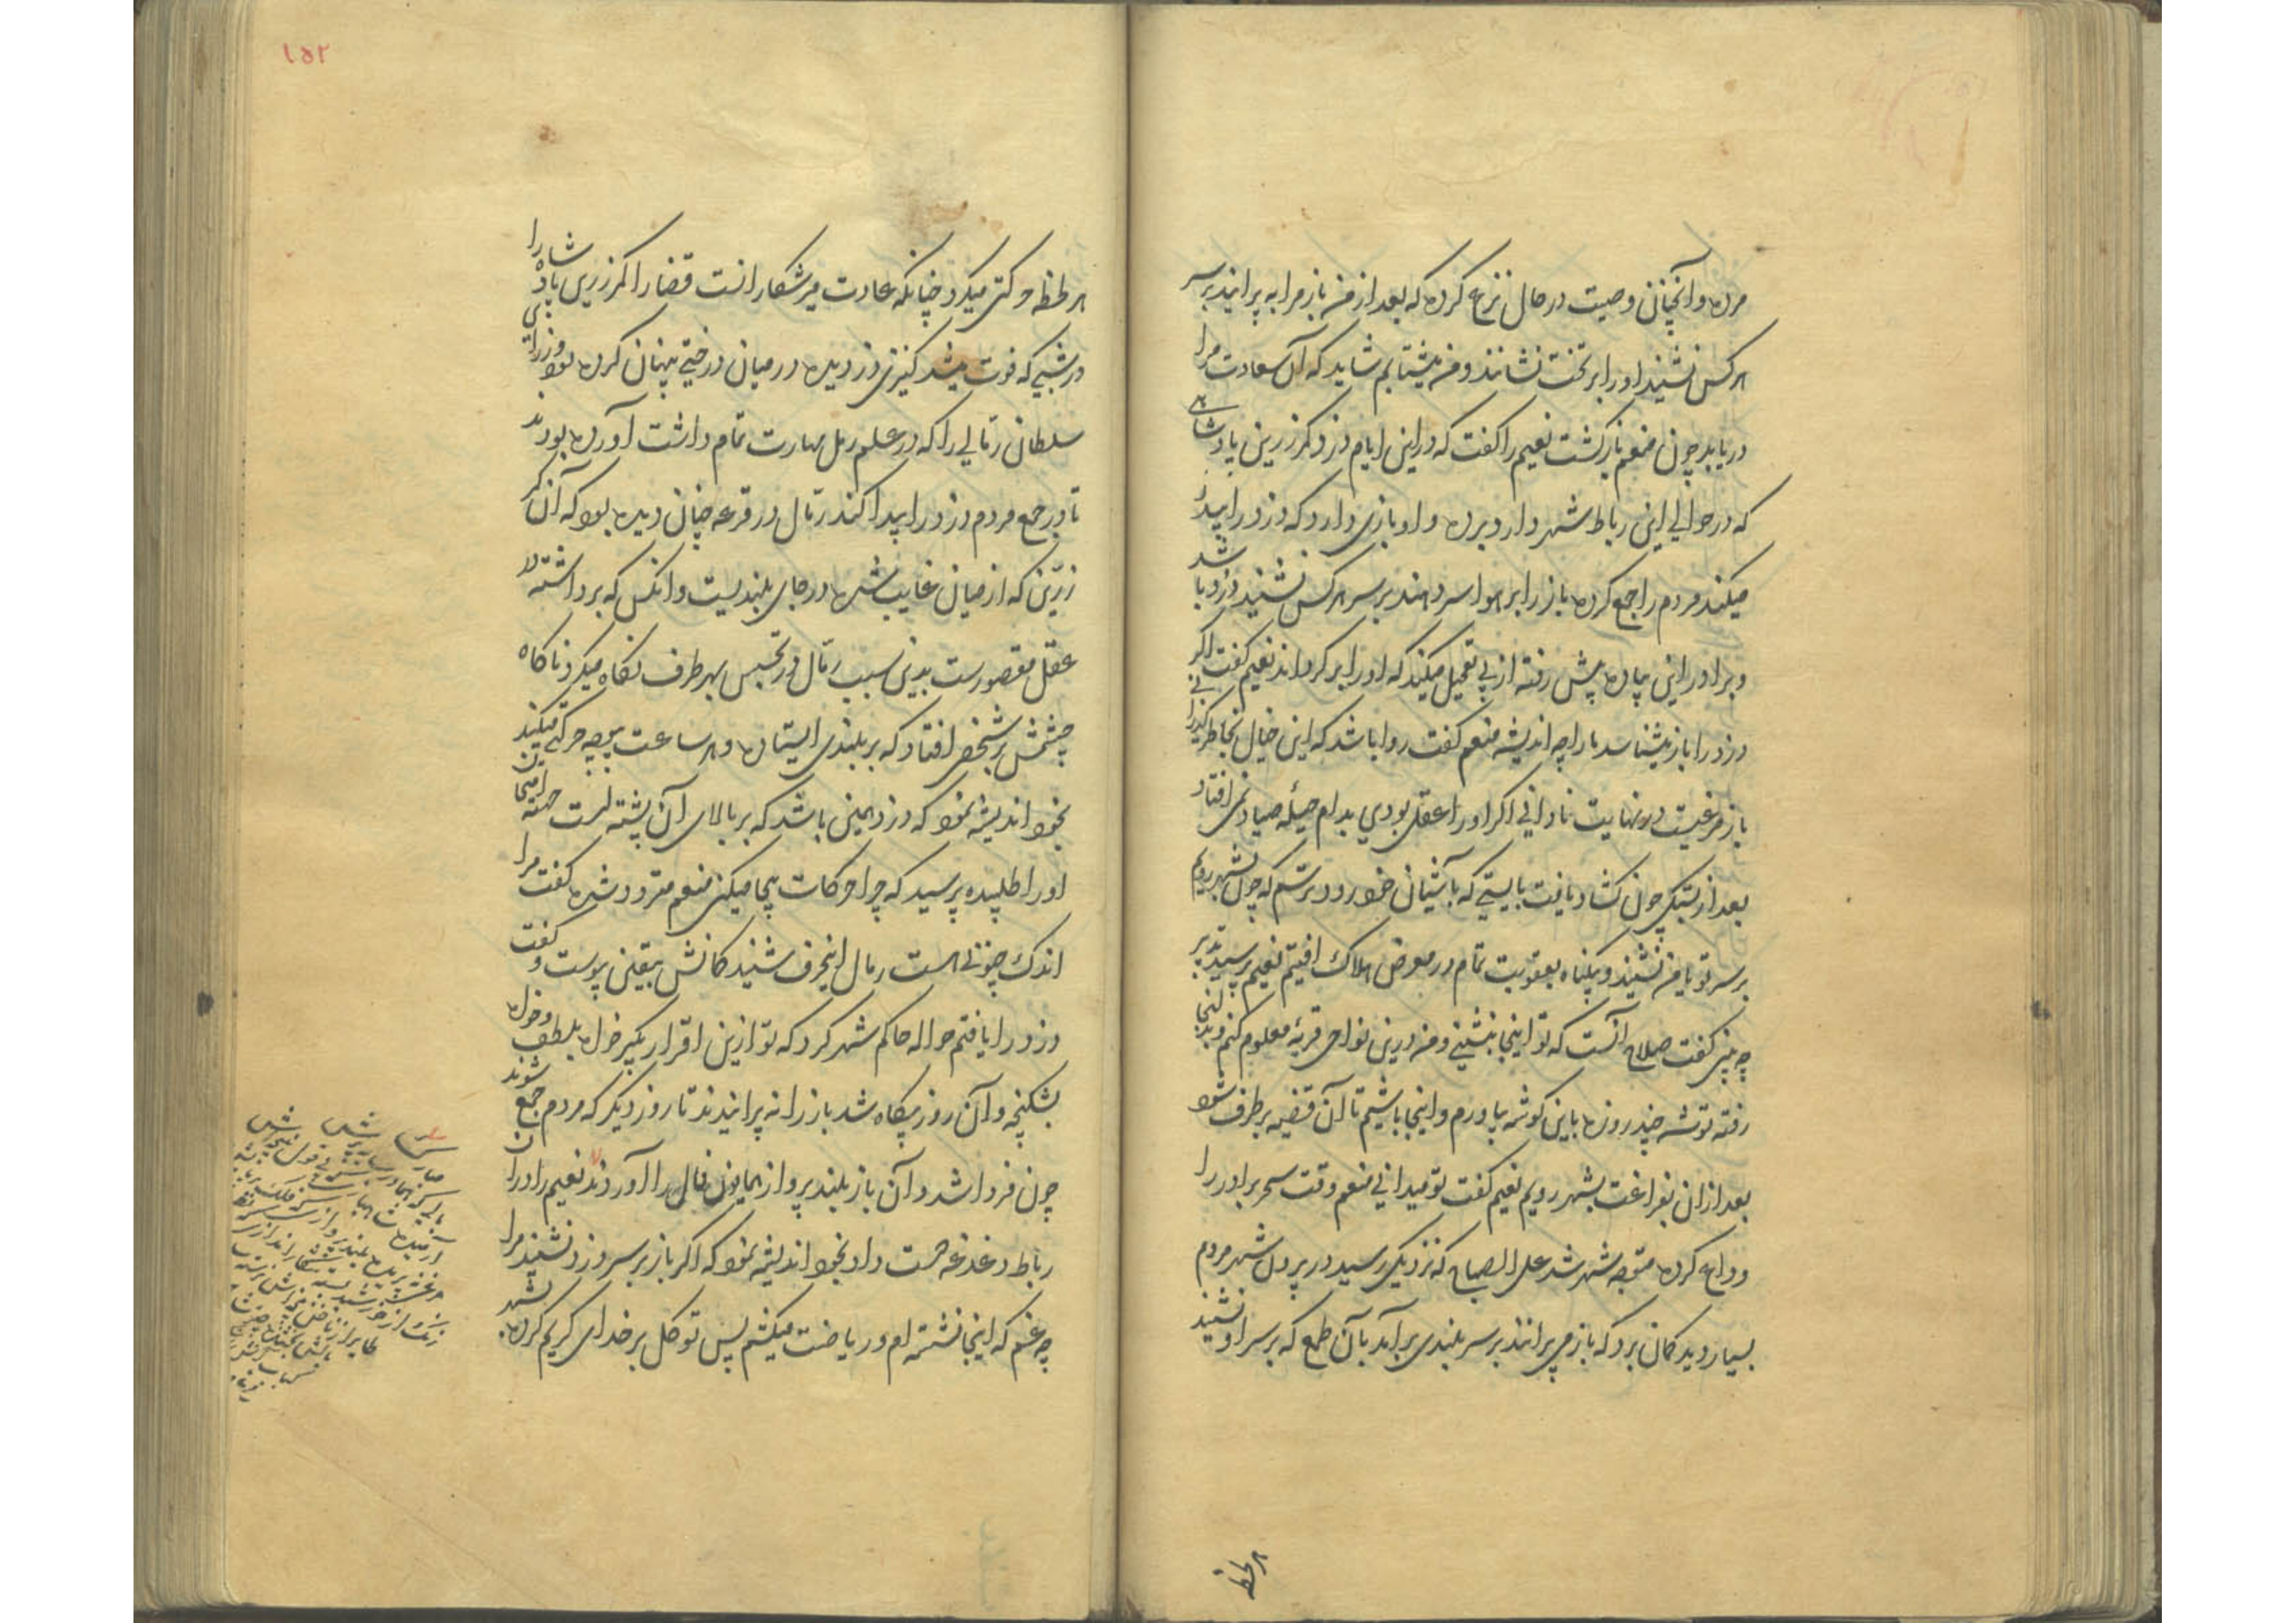 مرده و آنچنان وصیت در حال نزع کرده که بعد از من باز مرا به پرانید بر سر
هر کس نشیند او را بر تخت نشانند و من میشتابم شاید که آن سعادت مرا
دریابد چون منعم بازگشت نعیم را گفت که در این ایام دزد کمر زرین پادشاهی
که در حوالی این رباط شهر دارد برده و او بازی دارد که دزد را پیدا
میکند مردم را جمع کرده باز را بر هوا سر دهند بر سر هر کس نشیند دزد باشد
و برادر این پیاده پیش رفته از پی تعجیل میکند که او را بر گرداند نعیم گفت اگر
دزد را باز میشناسد ما را چه اندیشه منعم گفت روا باشد که این خیال بخاطر گذرانی
باز مرغیست در نهایت نادانی اگر او را عقل بودی بدام حیلهٔ صیاد نمی افتاد
بعد از بستگی چون گشاد یافت بایستی که بآشیان خود رود ترسم که چون بشهر رویم
بر سر تو یا من نشیند و بیگناه بعقوبت تمام در معرض هلاک افتیم نعیم پرسید تدبیر
چه بینی گفت صلاح آنست که تو اینجا بنشینی و من درین نواحی قریهٔ معلوم کنم و بدانجا
رفته توشه چند روزه باین گوشه بیاورم و اینجا باشیم تا آن قضیه بر طرف شود
بعد از ان بفراغت بشهر رویم نعیم گفت تو میدانی منعم وقت سحر برادر را
وداع کرده متوجه شهر شد علی الصباح که نزدیک رسید در بیرون شهر مردم
بسیار دید گمان برد که باز می پرانند بر سر بلندی بر آمد بآن طمع که بر سر او نشیند
هر لحظه
۱۵۲
هر لحظه حرکتی میکرد چنانکه عادت میر شکارانست قضا را کمر زرین پادشاه را
در شبی که فوت میشد کنیزی دزدیده در میان درختی پنهان کرده بود وزرای
سلطان رمالی را که در علم رمل مهارت تمام داشت آورده بودند
تا در جمع مردم دزد را پیدا کند رمال در قرعه چنان دیده بود که آن کمر
زرین که از میان غایب شده در جای بلندیست و انکس که برداشته
عقل مقصورست بدین سبب رمال در تجسس بهر طرف نگاه میکرد ناگاه
چشمش بر شخصی افتاد که بر بلندی ایستاده و هر ساعت بیوجه حرکتی میکند
بخود اندیشه نمود که دزد همین باشد که بر بالای آن پشته است جهته امتحان
او را طلبیده پرسید که چرا حرکات بیجا میکنی منعم متردد شده گفت مرا
اندک جنونی هست رمال اینحرف شنید گمانش بیقین پیوست و گفت
دزد را یافتم حواله حاکم شهر کرد که تو ازین اقرار بگیر خواه بلطف و خواه
بشکنجه و آن روز بیگاه شد باز را نه پرانیدند تا روز دیگر که مردم جمع شوند
چون فردا شد و آن باز بلند پرواز همایون فال را آوردند نعیم را در ان
رباط دغدغه دست داد بخود اندیشه نمود که اگر باز بر سر دزد نشیند مرا
چه غم که اینجا نشسته ام و ریاضت میکشم پس توکل بر خدای کریم کرده بشهر